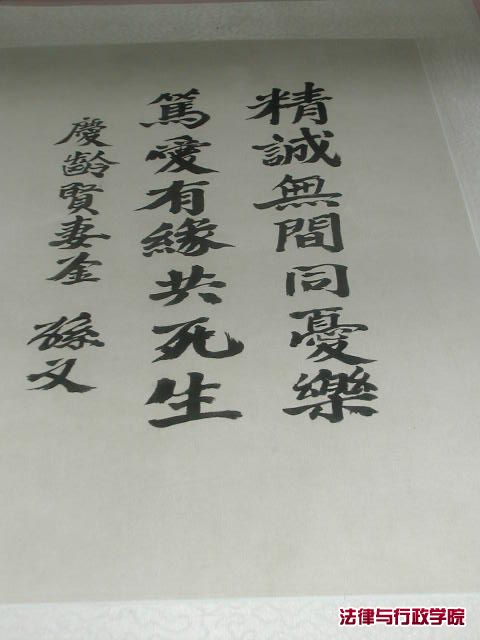 精誠無間同憂樂
篤愛有緣共死生
慶齡賢妻鉴 孫文
法律与行政学院